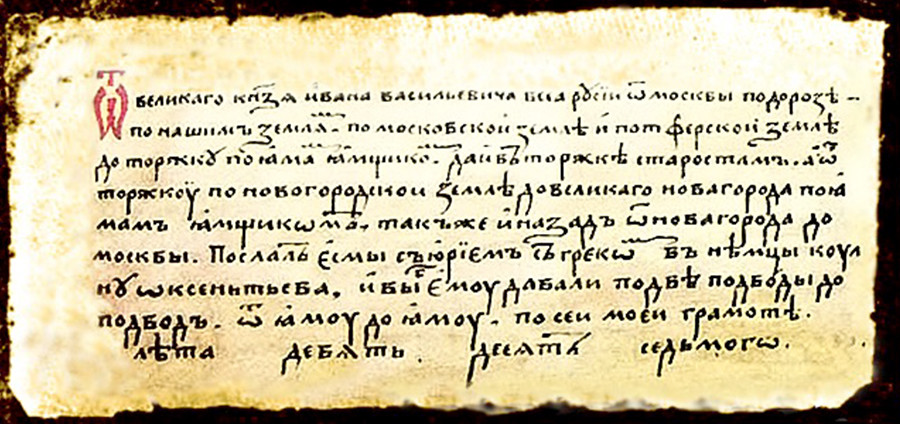 Ѿ великаго кн҃зѧ ивана васильевича всеа рꙋсїи ѿ москвы подорозѣ
по нашимъ землѧ. по московской землѣ и по тферской землѣ
до торжкꙋ по ꙗма ꙗмщико. да и въ торжкѣ старостамъ. а ѿ
торжкоу по новогородской землѣ до великаго новагорода по ꙗ
мамъ ꙗмщикѡмъ. такъже и назадъ ѿ новагорода до
москвы. Послалъ есмы съ юрїемъ съ грекѡ въ нѣмцы коул
нꙋ ѡксентьева. и вы емоу давали по двѣ подводы до
подводъ. ѿ ꙗмоу до ꙗмоу. по сеи моеи грамотѣ.
лѣта девѧть десѧт седьмогѡ.